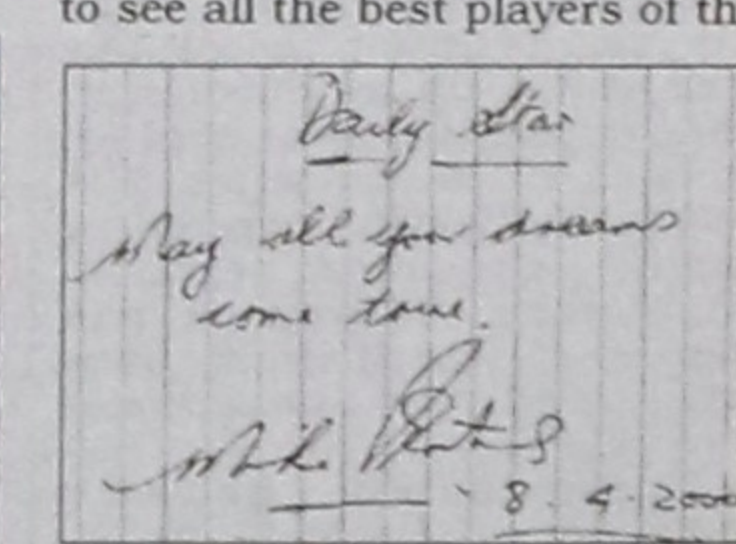 to see all the best players of th
Daily Star
May all your dreams
come true.
Mike
8.4.2000